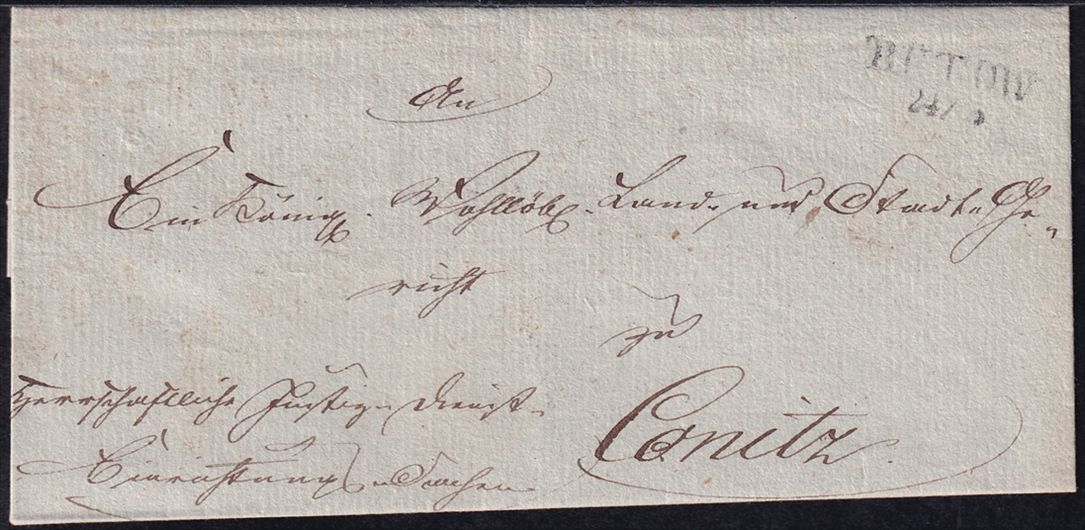 BUTOW
24/
An
Ein Königl. Wohllöbl. Land- und Stadt-Ge-
richt
zu
Herrschaftliche Justiz- Dienst-
Einrichtungs-Sachen
Conitz